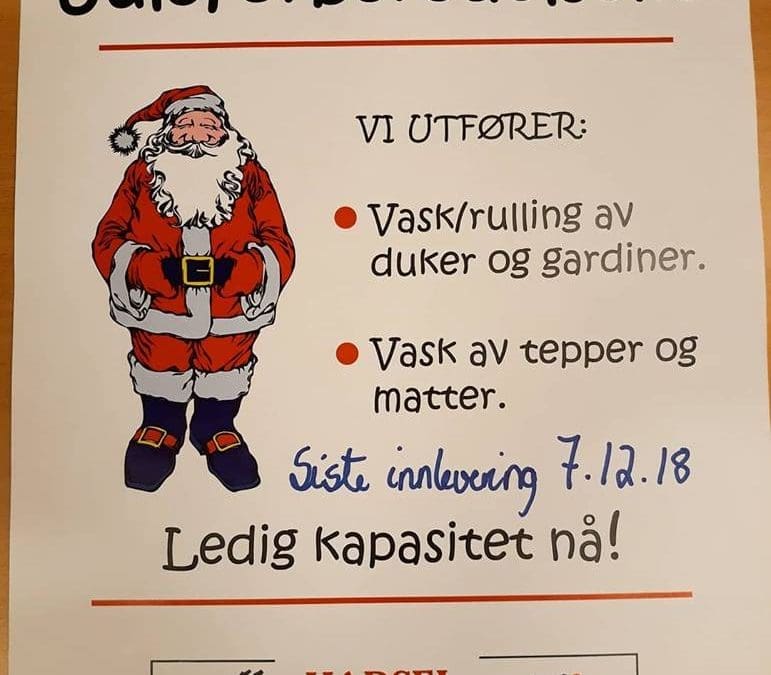 VI UTFØRER:
Vask/rulling av
duker og gardiner.
Vask av tepper og
matter.
Siste innlevering 7.12.18
Ledig kapasitet nå!